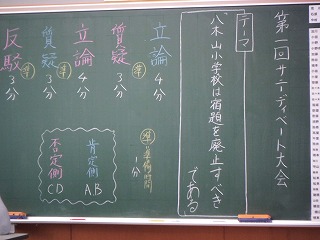 第二回 サニーディベート大会
テーマ
八木山小学校は宿題を廃止すべき
である
立論 4分
準
質疑 3分
立論 4分
準
質疑 3分
準
反駁 3分
準 準備時間
1分
肯定側 AB
否定側 CD